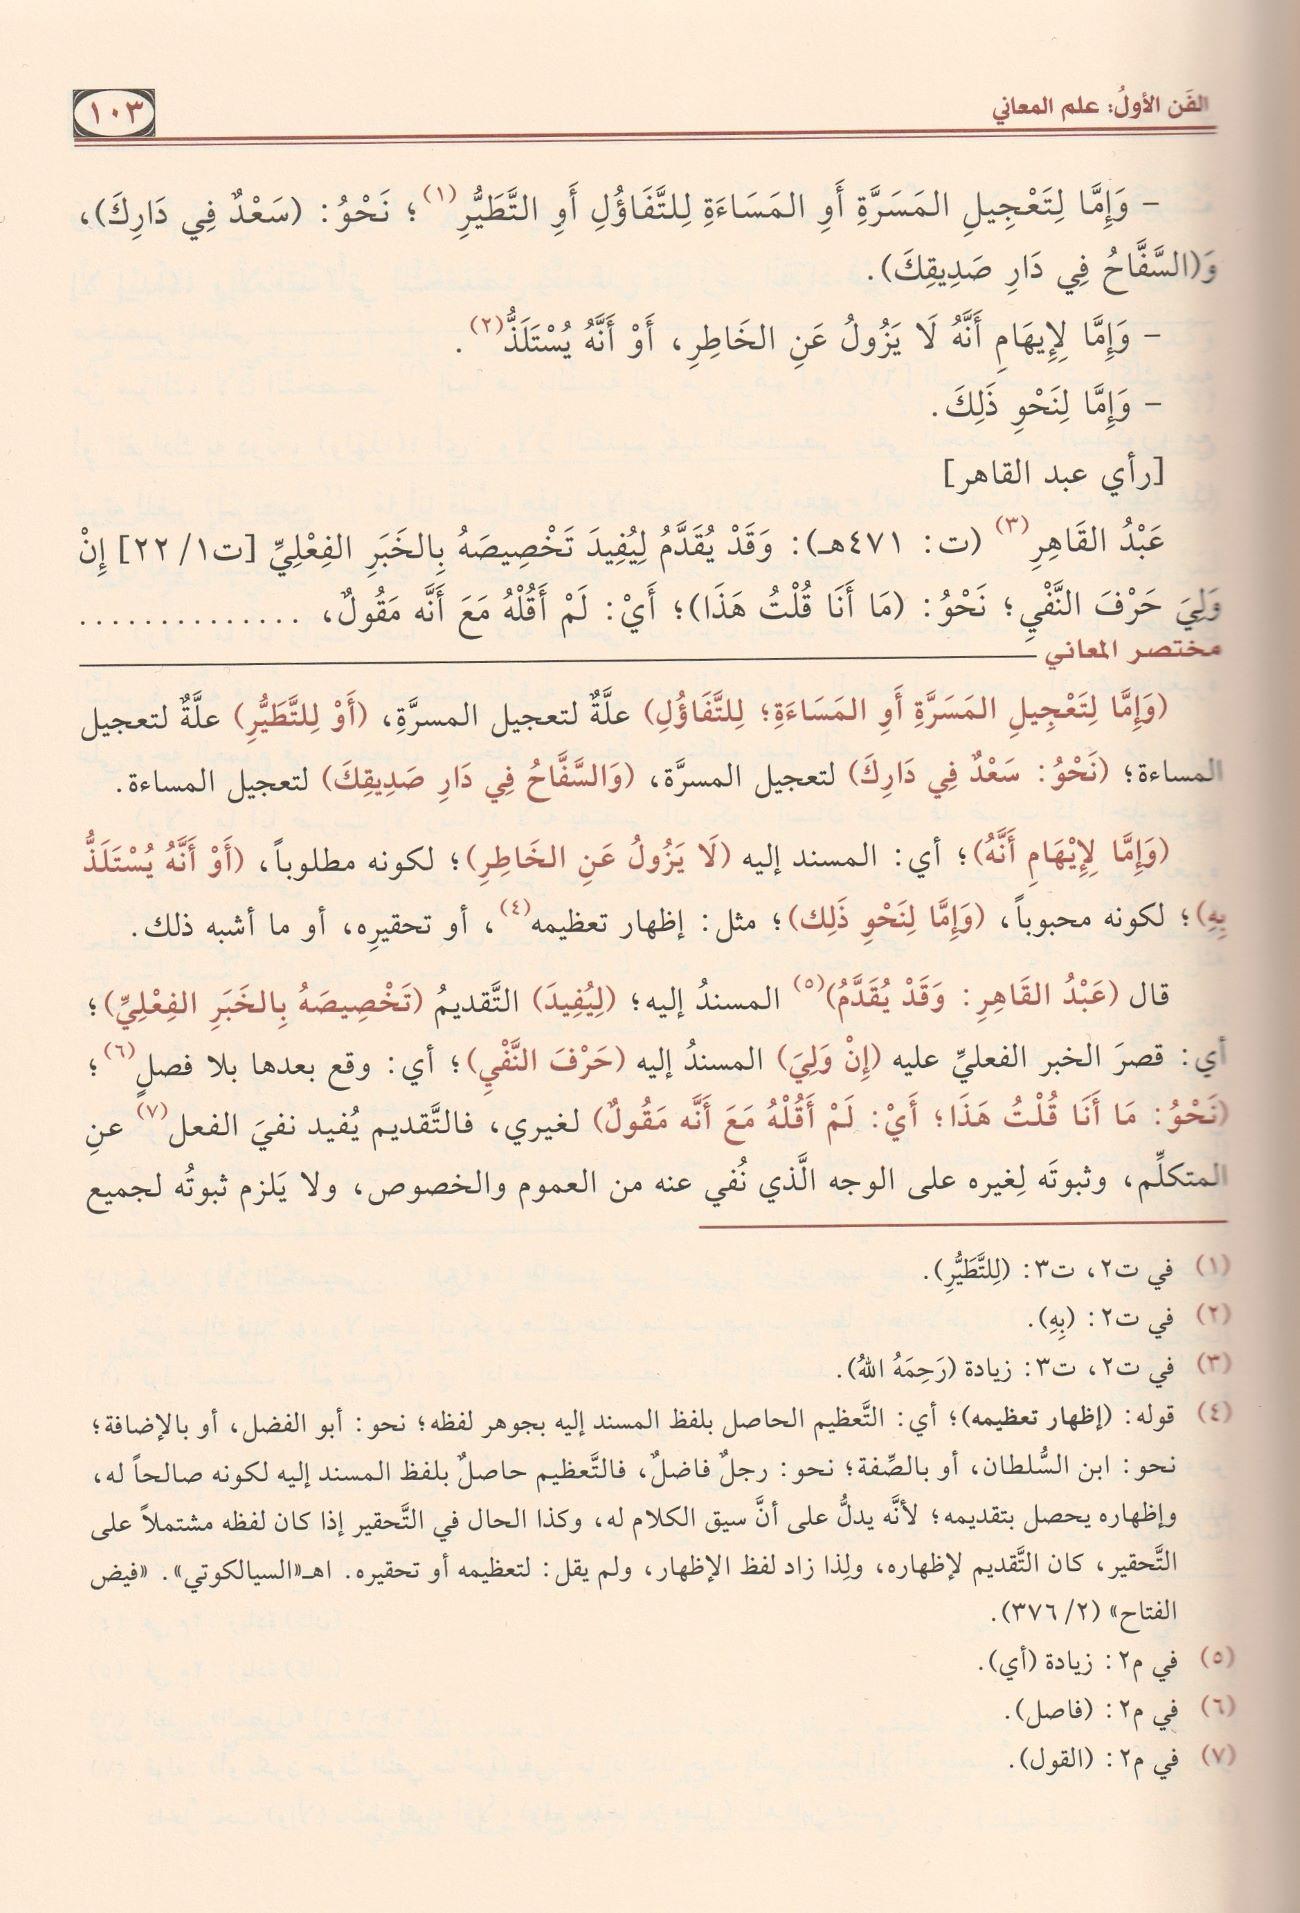 الفَن الأولُ: علم المعاني
١٠٣
- وَإِمَّا لِتَعْجِيلِ المَسَرَّةِ أَوِ المَسَاءَةِ لِلتَّفَاؤُلِ أَوِ التَّطَيُّرِ(١)؛ نَحْوُ: (سَعْدٌ فِي دَارِكَ)،
وَ(السَّفَّاحُ فِي دَارِ صَدِيقِكَ).
- وَإِمَّا لِإِيهَامِ أَنَّهُ لَا يَزُولُ عَنِ الخَاطِرِ، أَوْ أَنَّهُ يُسْتَلَذُّ(٢).
- وَإِمَّا لِنَحْوِ ذَلِكَ.
[رأي عبد القاهر]
عَبْدُ القَاهِرِ(٣) (ت: ٤٧١هـ): وَقَدْ يُقَدَّمُ لِيُفِيدَ تَخْصِيصَهُ بِالخَبَرِ الفِعْلِيِّ [ت١/ ٢٢] إِنْ
وَلِيَ حَرْفَ النَّفْيِ؛ نَحْوُ: (مَا أَنَا قُلْتُ هَذَا)؛ أَيْ: لَمْ أَقُلْهُ مَعَ أَنَّه مَقُولٌ، ..............
مختصر المعاني
(وَإِمَّا لِتَعْجِيلِ المَسَرَّةِ أَوِ المَسَاءَةِ؛ لِلتَّفَاؤُلِ) علَّةٌ لتعجيل المسرَّةِ، (أَوْ لِلتَّطَيُّرِ) علَّةٌ لتعجيل
المساءة؛ (نَحْوُ: سَعْدٌ فِي دَارِكَ) لتعجيل المسرَّة، (وَالسَّفَّاحُ فِي دَارِ صَدِيقِكَ) لتعجيل المساءة.
(وَإِمَّا لِإِيْهَامِ أَنَّهُ)؛ أي: المسند إليه (لَا يَزُولُ عَنِ الخَاطِرِ)؛ لكونه مطلوباً، (أَوْ أَنَّهُ يُسْتَلَذُّ
بِهِ)؛ لكونه محبوباً، (وَإِمَّا لِنَحْوِ ذَلِك)؛ مثل: إظهار تعظيمه(٤)، أو تحقيرِه، أو ما أشبه ذلك.
قال (عَبْدُ القَاهِرِ: وَقَدْ يُقَدَّمُ)(٥) المسندُ إليه؛ (لِيُفِيدَ) التَّقديمُ (تَخْصِيصَهُ بِالخَبَرِ الفِعْلِيِّ)؛
أي: قصرَ الخبر الفعليِّ عليه (إِنْ وَلِيَ) المسندُ إليه (حَرْفَ النَّفْيِ)؛ أي: وقع بعدها بلا فصلٍ(٦)؛
(نَحْوُ: مَا أَنَا قُلْتُ هَذَا؛ أَيْ: لَمْ أَقُلْهُ مَعَ أَنَّه مَقُولٌ) لغيري، فالتَّقديم يُفيد نفيَ الفعل(٧) عنِ
المتكلِّم، وثبوتَه لِغيره على الوجه الَّذي نُفي عنه من العموم والخصوص، ولا يَلزم ثبوتُه لجميع
(١) في ت٢، ت٣: (لِلتَّطَيُّرِ).
(٢) في ت٢: (بِهِ).
(٣) في ت٢، ت٣: زيادة (رَحِمَهُ اللهُ).
(٤) قوله: (إظهار تعظيمه)؛ أي: التَّعظيم الحاصل بلفظ المسند إليه بجوهر لفظه؛ نحو: أبو الفضل، أو بالإضافة؛
نحو: ابن السُّلطان، أو بالصِّفة؛ نحو: رجلٌ فاضلٌ، فالتَّعظيم حاصلٌ بلفظ المسند إليه لكونه صالحاً له،
وإظهاره يحصل بتقديمه؛ لأنَّه يدلُّ على أنَّ سيق الكلام له، وكذا الحال في التَّحقير إذا كان لفظه مشتملاً على
التَّحقير، كان التَّقديم لإظهاره، ولِذا زاد لفظ الإظهار، ولم يقل: لتعظيمه أو تحقيره. اهـ«السيالكوتي». «فيض
الفتاح» (٢/ ٣٧٦).
(٥) في م٢: زيادة (أي).
(٦) في م٢: (فاصل).
(٧) في م٢: (القول).